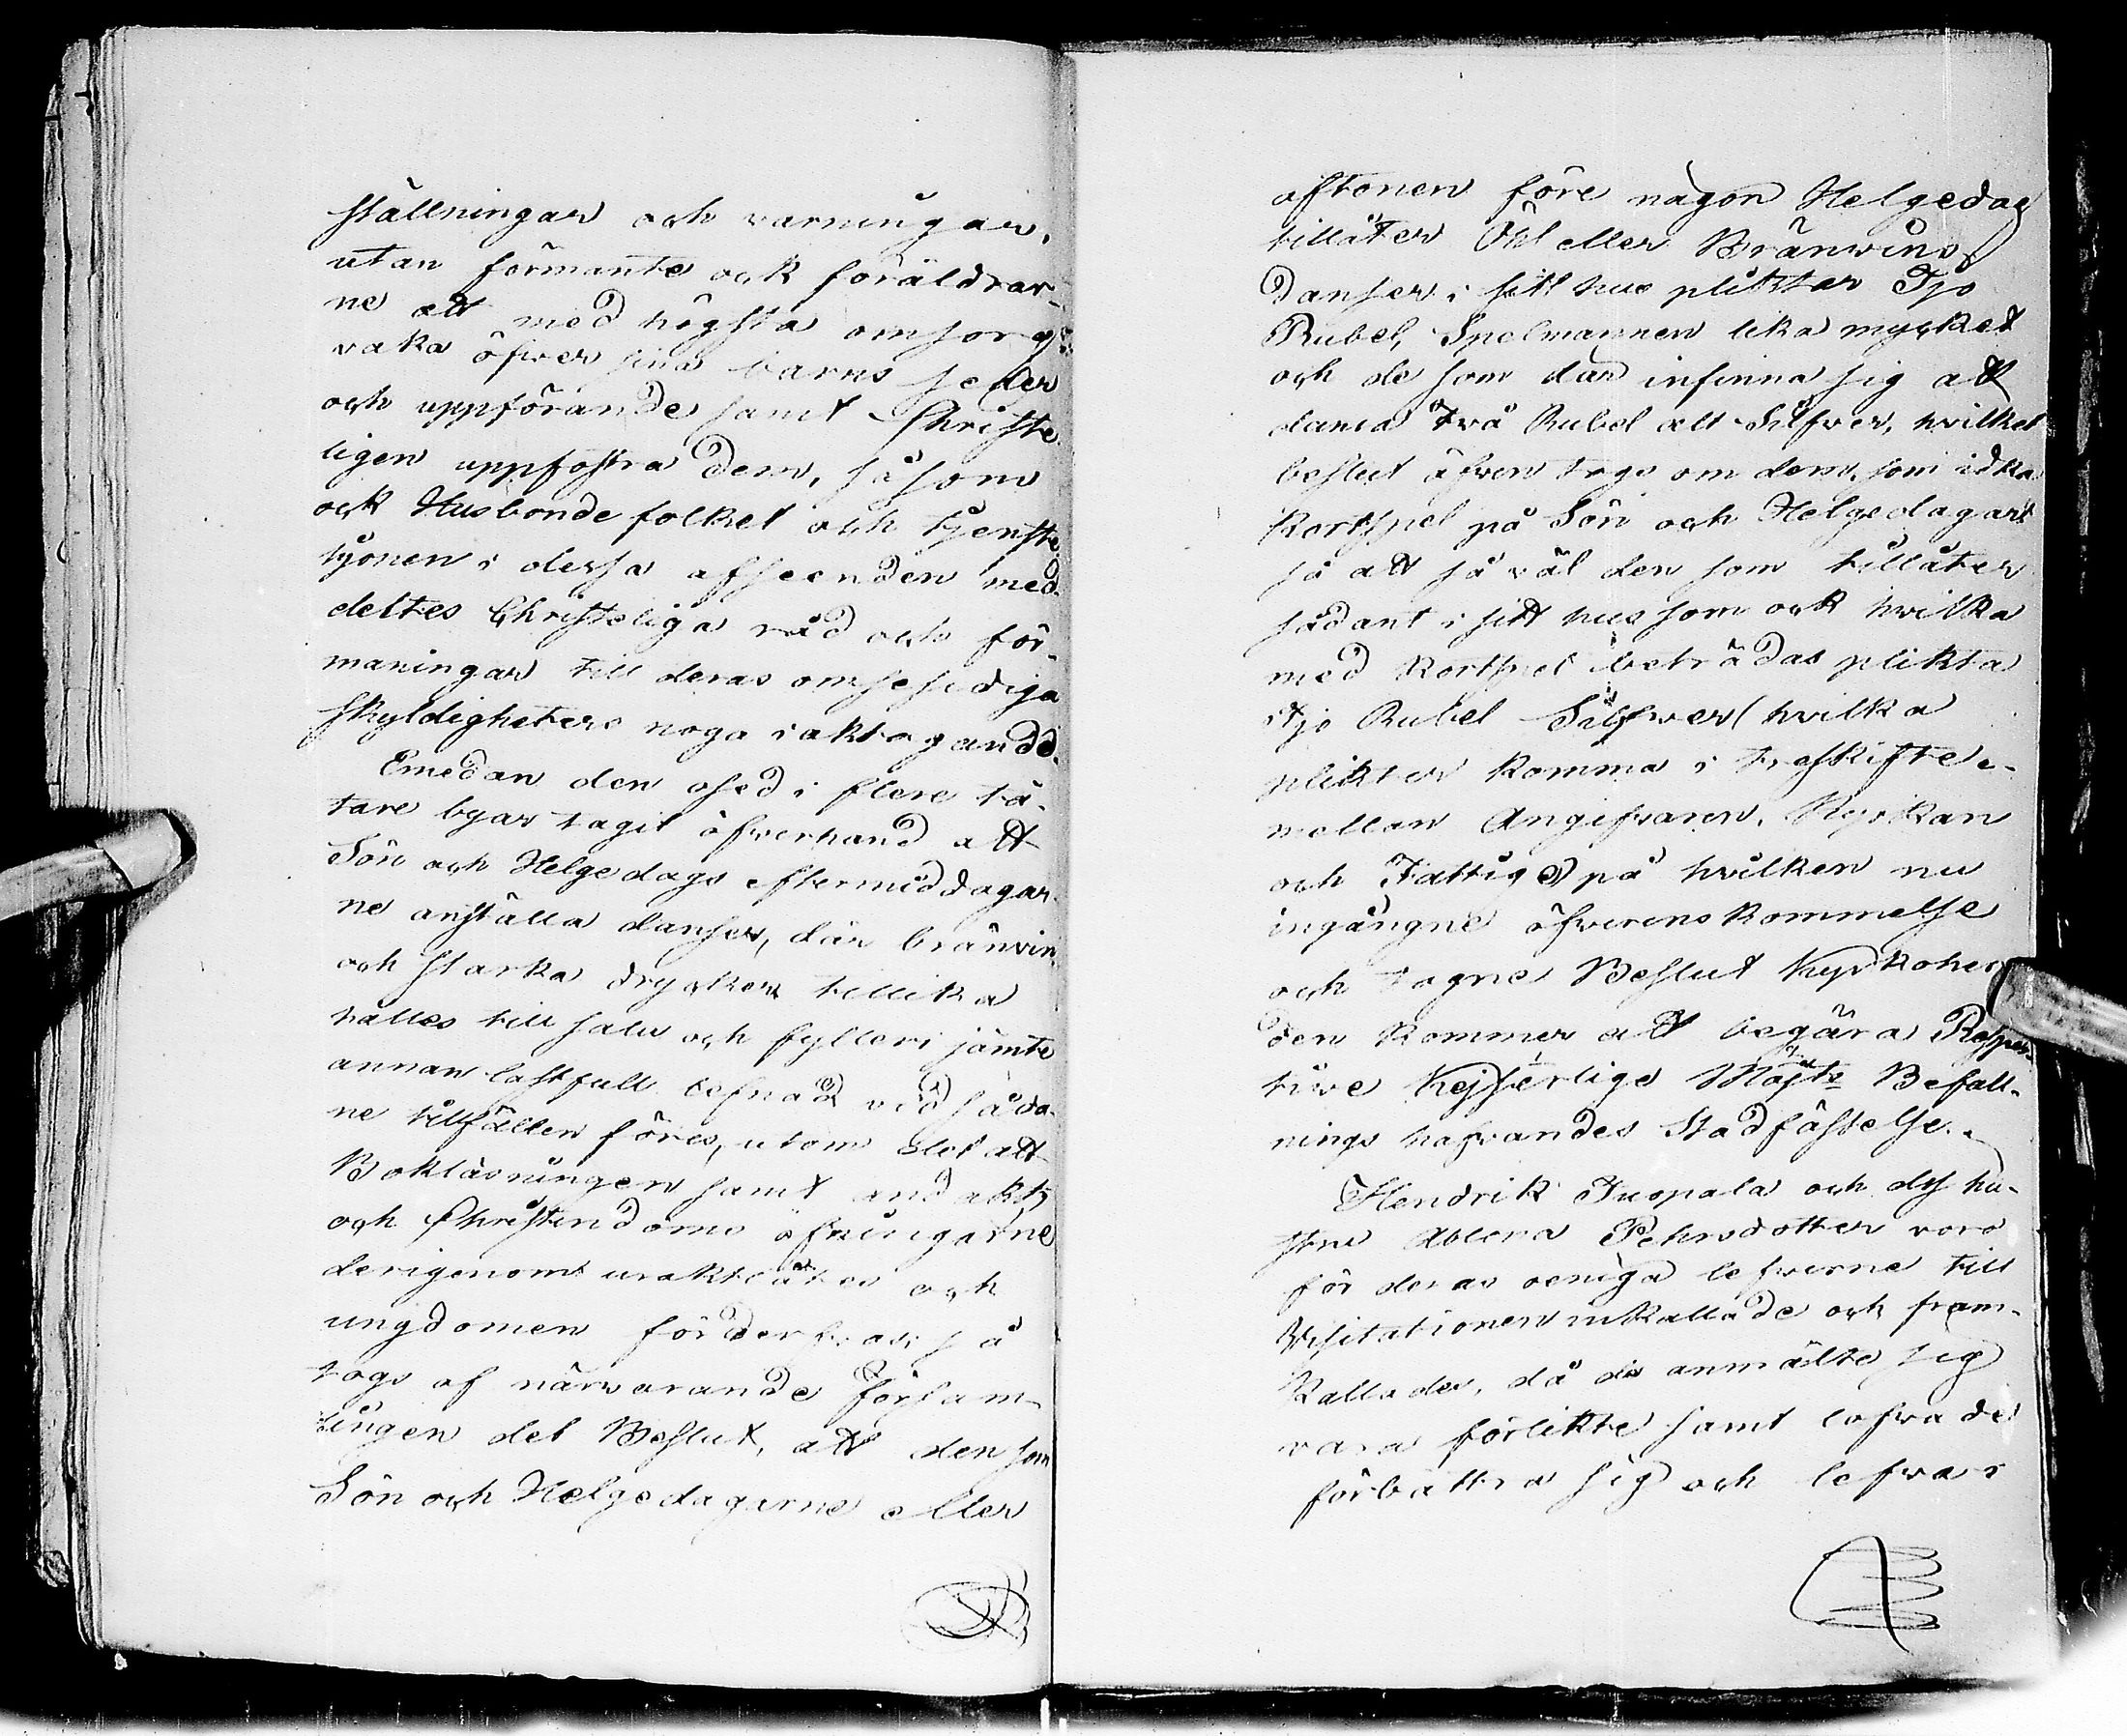 ställningar och varningar,
utan förmante ock föräldrar-
ne att med högsta omsorg
vaka öfver sina barns seder
och uppförande samt Christe
ligen uppfostra dem, såsom
ock Husbonde folket och tjenste
hjonen i dessa afseenden med-
deltes Christeliga råd och för-
maningar till deras omsesidiga
skyldigheters noga iakttagande.
Emedan den osed i flere tä-
tare byar tagit öfverhand att
Sön och Helgedags eftermiddagar-
ne anställa danser, där bränvin
och starka drycker tillika
hålles till salu och fylleri jämte
annan lastfull lefnad vid såda-
ne tillfällen föres, utom det att
Bokläsningen samt andakts
och Christendoms öfningarne
derigenom uraktlåtes och
ungdomen förderfvas; så
togs af närvarande Försam-
lingen det Beslut, att den som
Sön och Helgedagarne eller
aftonen före någon Helgedag
tillåter Öhl eller Bränvins
Danser i sitt hus plikter Tjo
Rubel, Spelmannen lika mycket
och de som där infinna sig att
dansa två Rubel alt Silfver, hvilket
beslut äfven togs om dem, som idka
Kortspel på Sön och Helgedagar
så att så väl den som tillåter
sådant i sitt hus som ock hvilka
med Kortspel beträdas plikta
tjo Rubel Silfver (hvilka
plikter komma i treskifte e-
mellan Angifvaren, Kyrkan
och Fattige) på hvilken nu
ingångne öfverenskommelse
och tagne Beslut Kyrkoher
den kommer att begära Respec-
tive Kejserlige Maj:ts Befall-
nings hafvandes Stadfästelse.
Hendrik Juopala och dess hu-
stru Pehrsdotter voro
för deras oeniga lefverne till
Visitationen inkallade och fram-
kallades, då de anmälte sig
vara förlikte samt lofvade
förbättra sig och lefva i